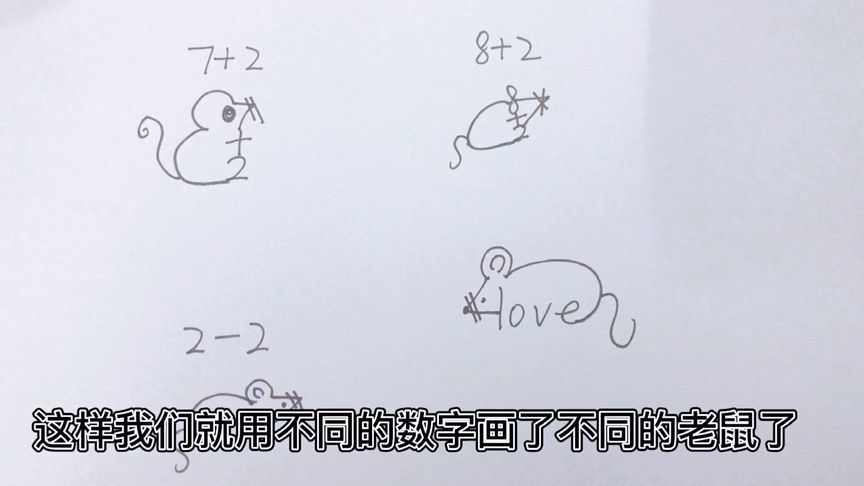 7+2
8+2
love
2-2
这样我们就用不同的数字画了不同的老鼠了